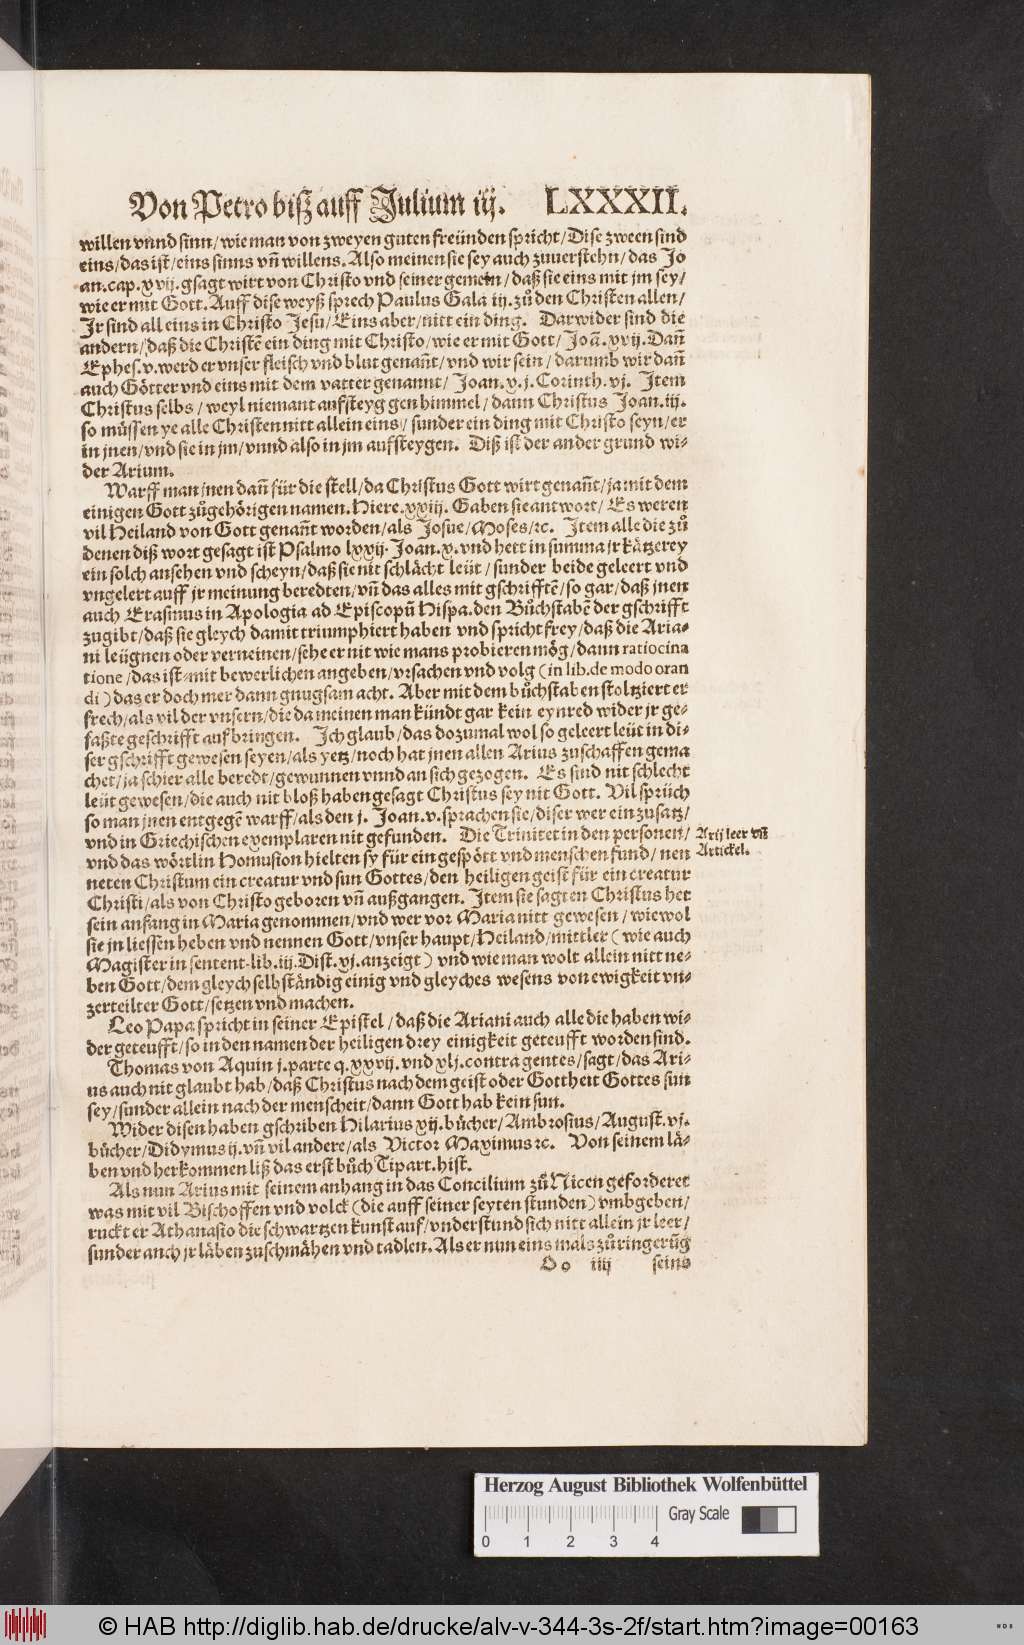 Von Petro biß auff Julium iij. LXXXII.
willen vnnd sinn/ wie man von zweyen guten freünden spricht/ Dise zween sind
eins/ das ist/ eins sinns vñ willens. Also meinen sie sey auch zuuerstehn/ das Jo
an. cap. xvij. gsagt wirt von Christo vnd seiner gemein/ daß sie eins mit jm sey/
wie er mit Gott. Auff dise weyß sprech Paulus Gala iij. zů den Christen allen/
Jr sind all eins in Christo Jesu/ Eins aber/ nitt ein ding. Darwider sind die
andern/ daß die Christẽ ein ding mit Christo/ wie er mit Gott/ Joã. xvij. Dañ
Ephes. v. werd er vnser fleisch vnd blut genañt/ vnd wir sein/ darumb wir dañ
auch Götter vnd eins mit dem vatter genannt/ Joan. x. j. Corinth. vj. Item
Christus selbs/ weyl niemant aufsteyg gen himmel/ dann Christus Joan. iij.
so müssen ye alle Christen nitt allein eins/ sunder ein ding mit Christo seyn/ er
in jnen/ vnd sie in jm/ vnnd also in jm aufsteygen. Diß ist der ander grund wi-
der Arium.
Warff man jnen dañ für die stell/ da Christus Gott wirt genañt/ ja mit dem
einigen Gott zůgehörigen namen. Hiere. xxiij. Gaben sie antwort/ Es weren
vil Heiland von Gott genañt worden/ als Josue/ Moses/ ꝛc. Item alle die zů
denen diß wort gesagt ist Psalmo lxxij. Joan. x. vnd hett in summa jr kätzerey
ein solch ansehen vnd scheyn/ daß sie nit schlächt leüt/ sunder beide geleert vnd
vngelert auff jr meinung beredten/ vñ das alles mit gschrifftẽ/ so gar/ daß jnen
auch Erasmus in Apologia ad Episcopũ Hispa. den Bůchstabẽ der gschrifft
zugibt/ daß sie gleych damit triumphiert haben vnd spricht frey/ daß die Aria-
ni leügnen oder verneinen/ sehe er nit wie mans probieren mög/ dann ratiocina
tione/ das ist mit bewerlichen angeben/ vrsachen vnd volg (in lib. de modo oran
di) das er doch mer dann gnugsam acht. Aber mit dem bůchstaben stoltziert er
frech/ als vil der vnsern/ die da meinen man kündt gar kein eynred wider jr ge-
faßte geschrifft aufbringen. Ich glaub/ das dozumal wol so geleert leüt in di-
ser gschrifft gewesen seyen/ als yetz/ noch hat jnen allen Arius zuschaffen gema
chet/ ja schier alle beredt/ gewunnen vnnd an sich gezogen. Es sind nit schlecht
leüt gewesen/ die auch nit bloß haben gesagt Christus sey nit Gott. Vil sprüch
so man jnen entgegẽ warff/ als den j. Joan. v. sprachen sie/ diser wer ein zusatz/
vnd in Griechischen exemplaren nit gefunden. Die Trinitet in den personen/
Arij leer vñ
Artickel.
vnd das wörtlin Homusion hielten sy für ein gespött vnd menschen fund/ nen
neten Christum ein creatur vnd sun Gottes/ den heiligen geist für ein creatur
Christi/ als von Christo geboren vñ außgangen. Item sie sagten Christus het
sein anfang in Maria genommen/ vnd wer vor Maria nitt gewesen/ wiewol
sie jn liessen heben vnd nennen Gott/ vnser haupt/ Heiland/ mittler (wie auch
Magister in sentent. lib. iij. Dist. vj. anzeigt) vnd wie man wolt allein nitt ne-
ben Gott/ dem gleych selbständig einig vnd gleyches wesens von ewigkeit vn-
zerteilter Gott/ setzen vnd machen.
Leo Papa spricht in seiner Epistel/ daß die Ariani auch alle die haben wi-
der geteufft/ so in den namen der heiligen drey einigkeit geteufft worden sind.
Thomas von Aquin j. parte q. xxvij. vnd xlj. contra gentes/ sagt/ das Ari-
us auch nit glaubt hab/ daß Christus nach dem geist oder Gottheit Gottes sun
sey/ sunder allein nach der menscheit/ dann Gott hab kein sun.
Wider disen haben gschriben Hilarius xij. bücher/ Ambrosius/ August. vj.
bücher/ Didymus ij. vñ vil andere/ als Victor Maximus ꝛc. Von seinem lä-
ben vnd herkommen liß das erst bůch Tipart. hist.
Als nun Arius mit seinem anhang in das Concilium zů Nicen geforderet
was mit vil Bischoffen vnd volck (die auff seiner seyten stunden) vmbgeben/
ruckt er Athanasio die schwartzen kunst auf/ vnderstund sich nitt allein jr leer/
sunder auch jr läben zuschmähen vnd tadlen. Als er nun eins mals zů ringerũg
Oo iiij seins
Herzog August Bibliothek Wolfenbüttel
Gray Scale
0 1 2 3 4
© HAB http://diglib.hab.de/drucke/alv-v-344-3s-2f/start.htm?image=00163